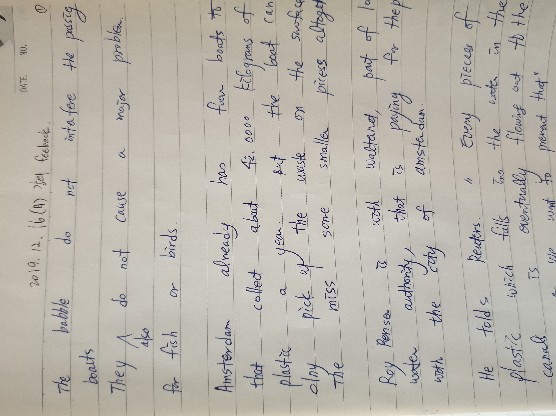 DATE NO.
2019. 12. 16(月) 2차 feedback.
①
The bubble do not interfere the passing
boats
They ^ do not cause a major problem
also
for fish or birds.
Amsterdam already has five boats to
that collect about 42.0000 kilograms of
plastic a year. but the boat can
olny pick up the waste on the surface
The miss some smaller pices altoget
Roy is with waltanet, part of lo
water authority, that is paying for the p
with the city of amsterdam
He tolds Renters. " Every pieces of
plastic which falls ino the water in the
canals is eventually flowing out to the
we want to prevent that"